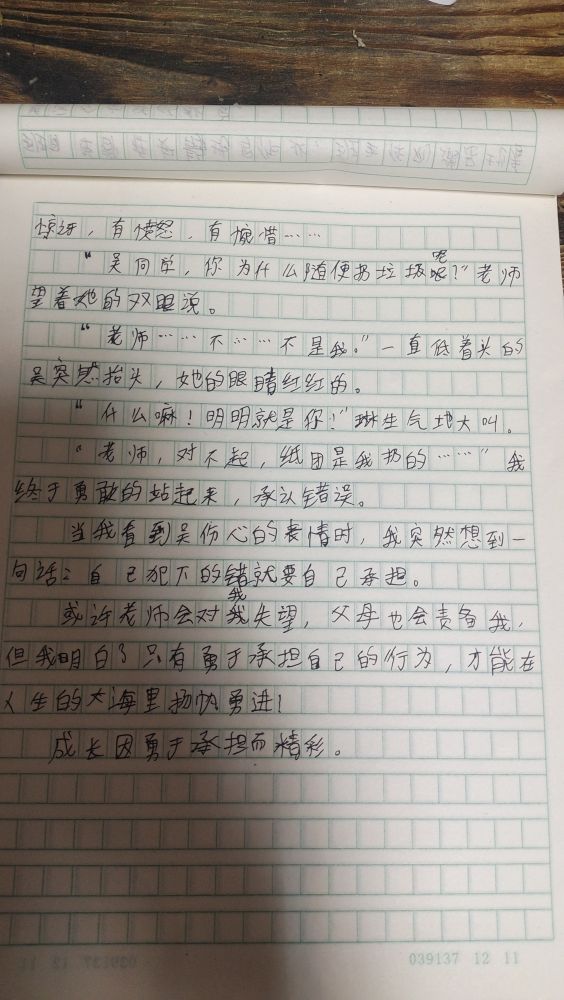 惊讶，有愤怒，有惋惜……
“吴同学，你为什么随便扔垃圾呢？”老师
望着她的双眼说。
“老师……不……不是我。”一直低着头的
吴突然抬头，她的眼睛红红的。
“什么嘛！明明就是你！”琳生气地大叫。
“老师，对不起，纸团是我扔的……”我
终于勇敢的站起来，承认错误。
当我看到吴伤心的表情时，我突然想到一
句话：自己犯下的错就要自己承担。
或许老师会对我失望，父母也会责备我，
但我明白了只有勇于承担自己的行为，才能在
人生的大海里扬帆勇进！
成长因勇于承担而精彩。
039137 12 11